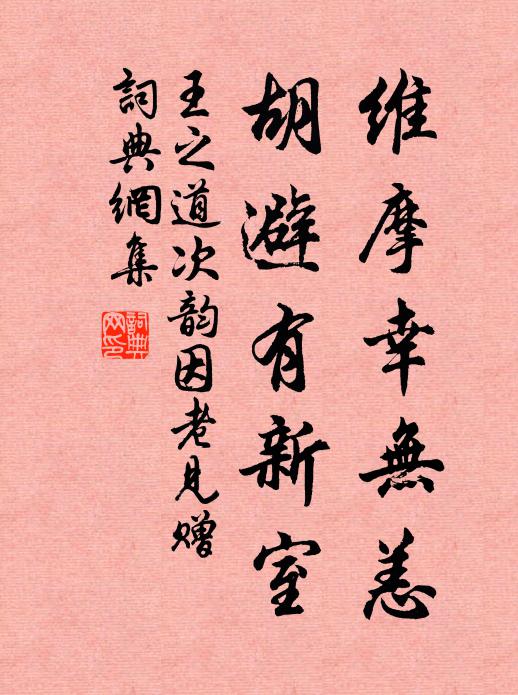 維摩幸無恙
胡避有新室
王之道次韵因老見贈
詞典網集
詞典
网印